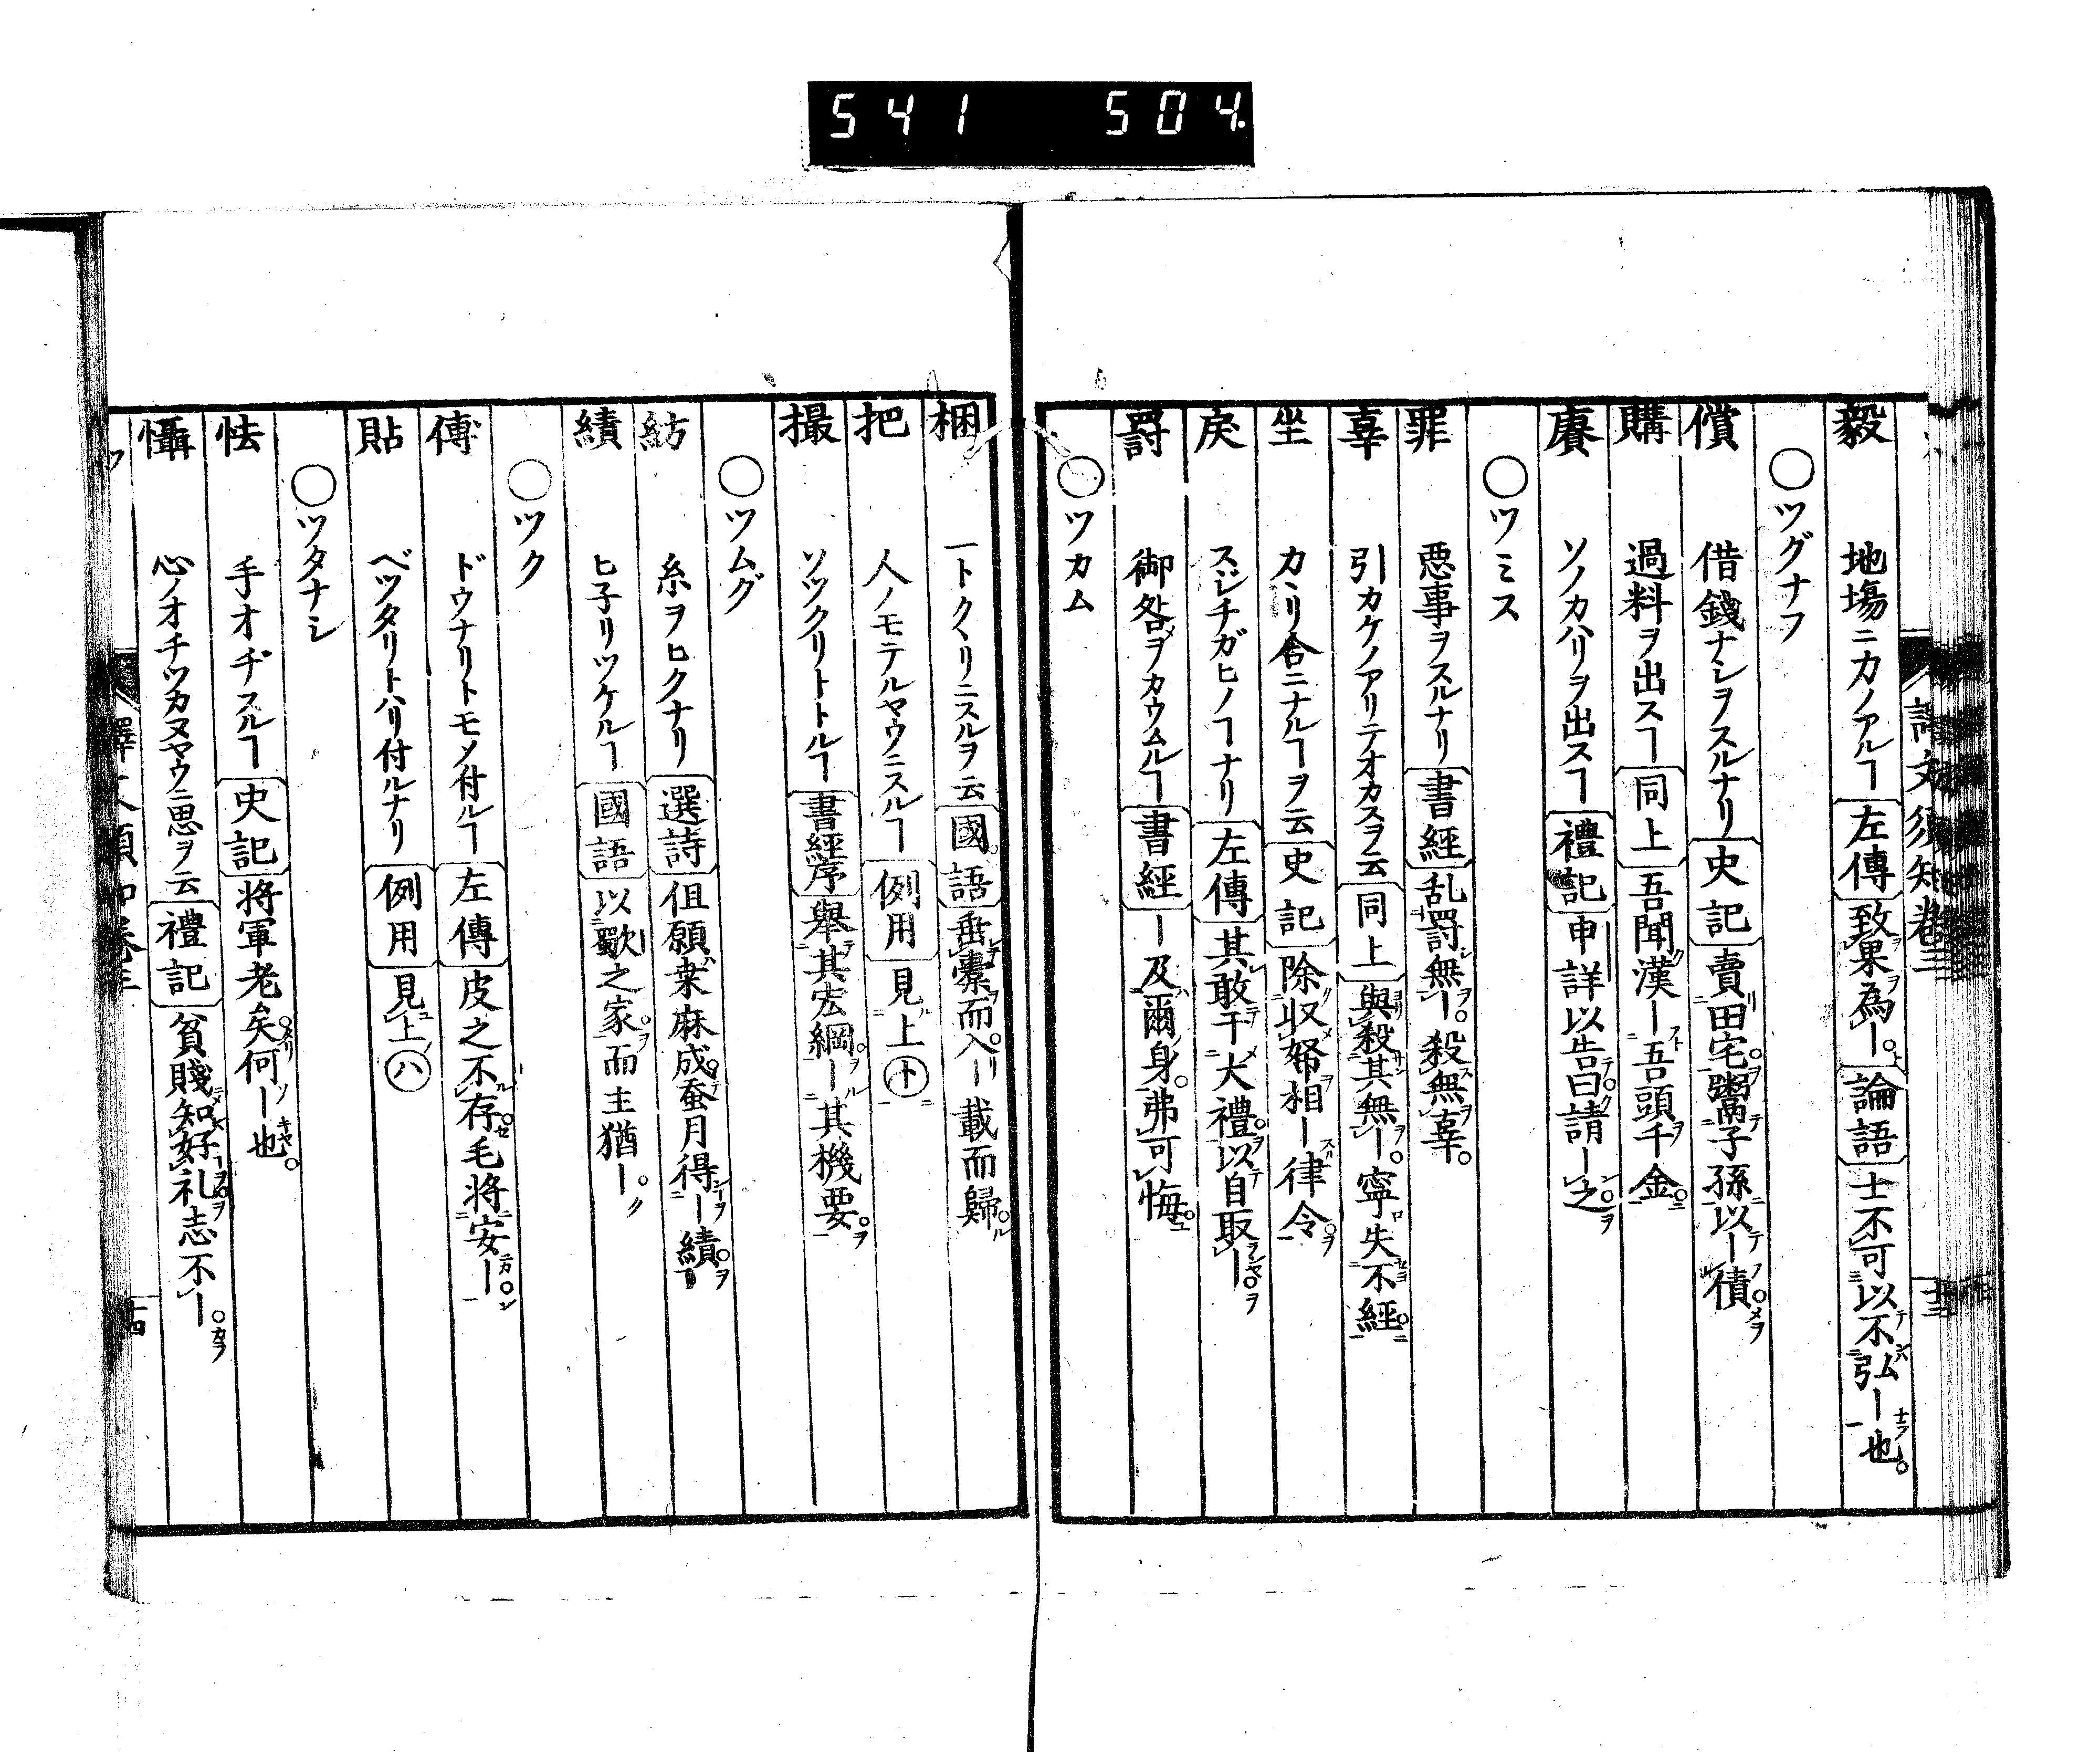 541 504
譯文須知卷三
毅 地場ニカノアルヿ 左傳 致果為ー 論語 士不可以不弘ー也
○ツグナフ
償 借錢ナシヲスルナリ 史記 賣田宅鬻子孫以ー積
購 過料ヲ出スヿ 同上 吾聞漢ー吾頭千金
賡 ソノカハリヲ出スヿ 禮記 申詳以告曰請ー之
○ツミス
罪 悪事ヲスルナリ 書經 乱罰無ー殺無辜
辜 引カケノアリテオカスヲ云 同上 與殺其無ー寧失不經
坐 カヽリ合ニナルヿヲ云 史記 除収帑相ー律令
戻 スヂチガヒノヿナリ 左傳 其敢干大禮以自取ー
罸 御咎メヲカウムルヿ 書經 ー及爾身弗可悔
○ツカム
梱 一トクヽリニスルヲ云 國語 垂橐而入ー載而歸
把 人ノモテルヤウニスルヿ 例用 見上ト
撮 ソツクリトトルヿ 書經序 舉其宏綱ー其機要
○ツムグ
紡 糸ヲヒクナリ 選詩 但願桒麻成蚕月得ー績
績 ヒ子リツケルヿ 國語 以歜之家而主猶ー
○ツク
傅 ドウナリトモメ付ルヿ 左傳 皮之不存毛将安ー
貼 ベツタリトハリ付ルナリ 例用 見上ハ
○ツタナシ
怯 手オヂスルヿ 史記 将軍老矣何ー也
懾 心ノオチツカヌヤウニ思ヲ云 禮記 貧賤知好礼志不ー